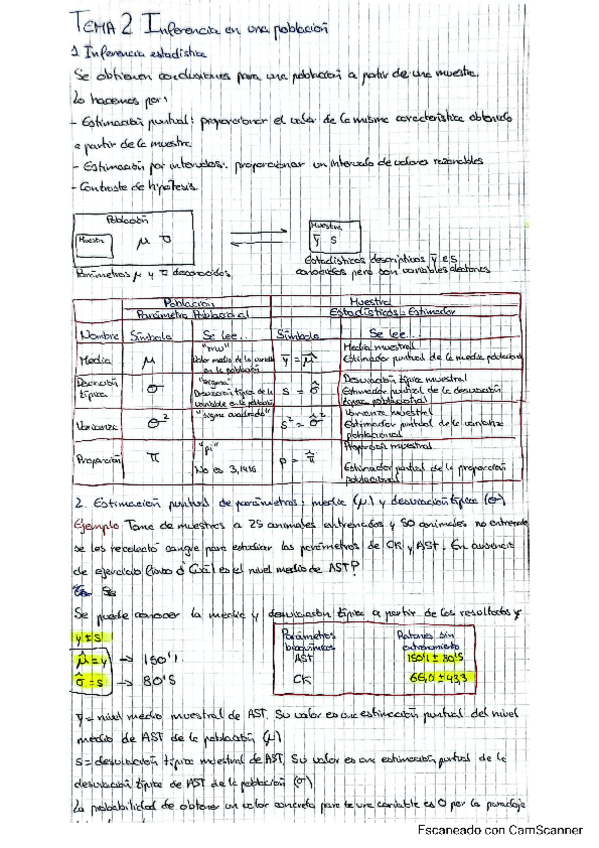 TEMA 2 Inferencia en una población
1 Inferencia estadística
Se obtienen conclusiones para una población a partir de una muestra.
Lo hacemos por:
- Estimación puntual: proporcionar el valor de la misma característica obtenido
a partir de la muestra
- Estimación por intervalos: proporcionar un intervalo de valores razonables
- Contraste de hipótesis.
Población
Muestra μ σ
Muestra
ȳ s
Parámetros μ y σ desconocidos
Estadísticos descriptivos ȳ e s
conocidos pero son variables aleatorias
Población Muestral
Parámetro Poblacional Estadísticos = Estimador
Nombre Símbolo Se lee... Símbolo Se lee...
Media μ "mu" Valor medio de la variable en la población ȳ = μ̂ Media muestral Estimador puntual de la media poblacional
Desviación típica σ "sigma" Desviación típica de la variable en la población s = σ̂ Desviación típica muestral Estimador puntual de la desviación típica poblacional
Varianza σ² "sigma cuadrado" s² = σ̂² Varianza muestral Estimador puntual de la varianza poblacional
Proporción π "pi" No es 3,1416 p = π̂ Proporción muestral Estimador puntual de la proporción poblacional
2. Estimación puntual de parámetros: media (μ) y desviación típica (σ)
Ejemplo Tome de muestras a 25 animales entrenados y 50 animales no entrenados
se les recolectó sangre para estudiar los parámetros de CK y AST. En ausencia
de ejercicio físico ¿Cuál es el nivel medio de AST?
Se puede conocer la media y desviación típica a partir de los resultados y
y ± s
μ̂ = y → 150'1
σ̂ = s → 80'5
Parámetros bioquímicos
sin entrenamiento
AST 150'1 ± 80'5
CK 66,0 ± 43,3
ȳ = nivel medio muestral de AST. Su valor es una estimación puntual del nivel
medio de AST de la población (μ)
s = desviación típica muestral de AST. Su valor es una estimación puntual de la
desviación típica de AST de la población (σ)
La probabilidad de obtener un valor concreto para una variable es 0 por la paradoja
Escaneado con CamScanner